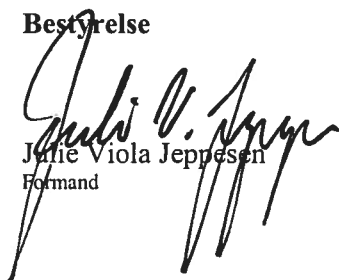 Bestyrelse
Julie V. Jeppesen
Julie Viola Jeppesen
Formand